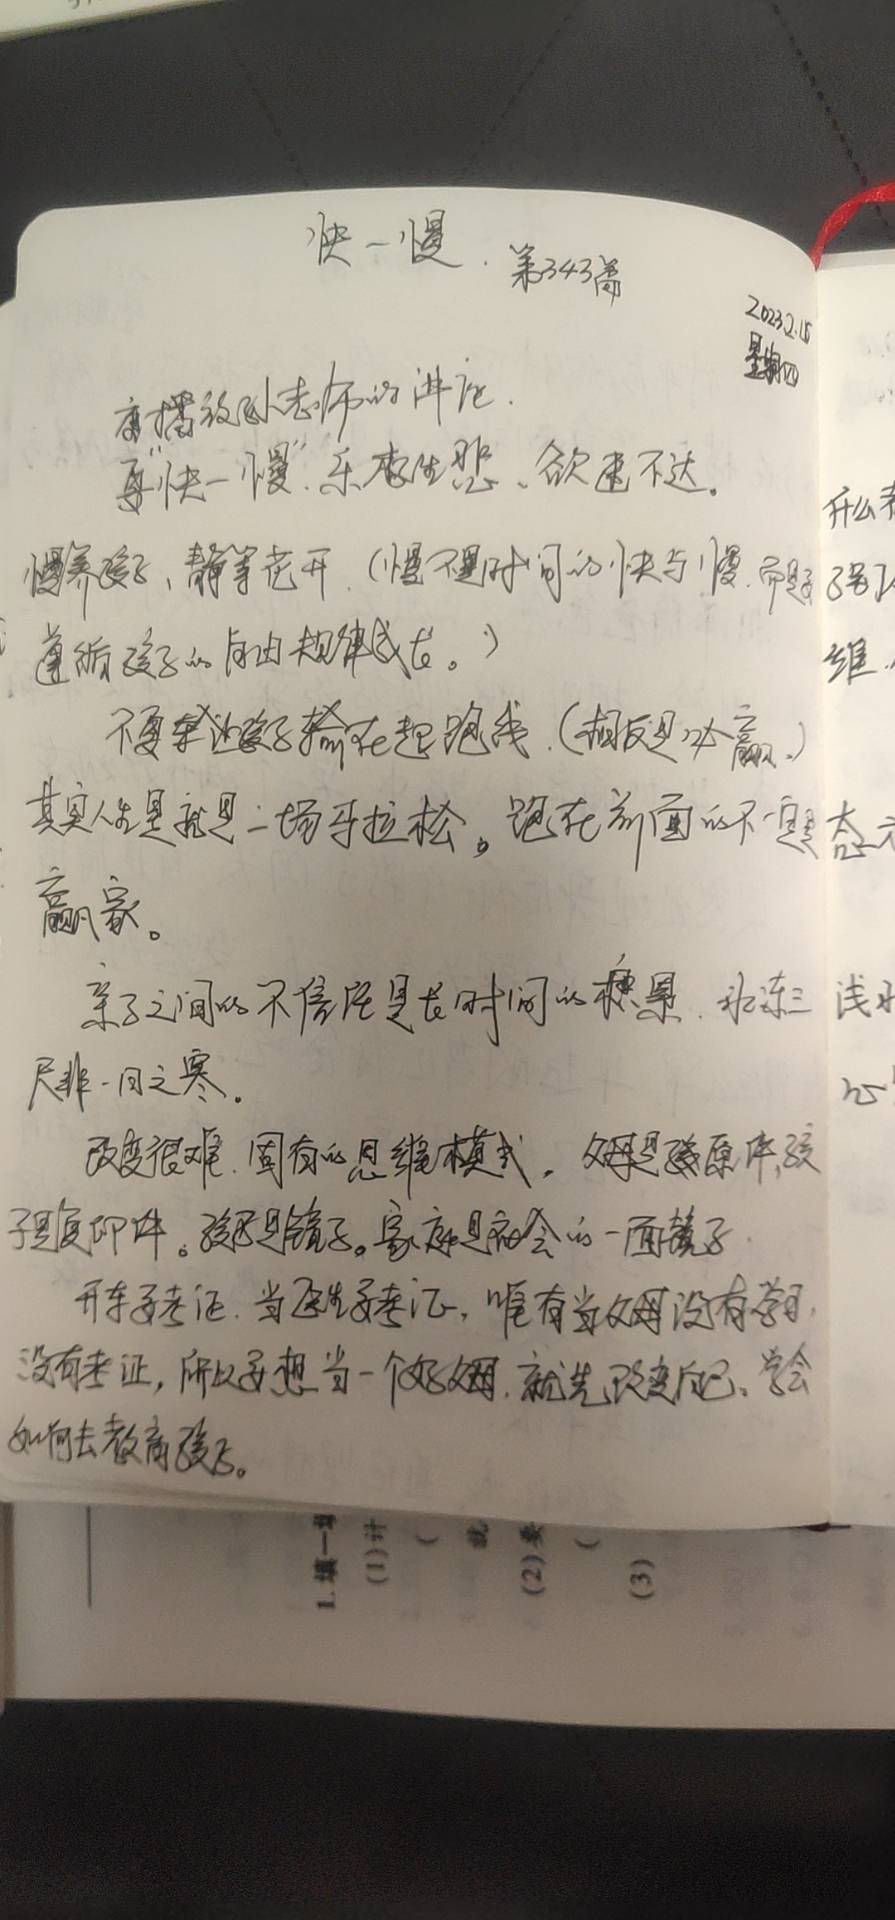 快一慢. 第343篇
2023.2.
星期四
播放 老师的讲座.
"快一慢". 乐极生悲、欲速不达。
慢养孩子、静等花开.(慢不是时间的快与慢.而是
遵循孩子的自由规律成长。)
不要 让孩子输在起跑线.(相反是 赢.)
其实人生是就是一场马拉松。跑在前面的不一定是
赢家。
亲子之间的不信任是长时间的积累.冰冻三
尺非一日之寒。
改变很难.固有的思维模式。父母是 原件,孩
子是复印件。孩子是镜子。家庭是社会的一面镜子
开车要考证.当医生要考证,唯有当父母没有学习,
没有考证,所以要想当一个好父母.就先改变自己、学会
如何去教育孩子。
什么
维.
浅
心
1.填一填
(1)计
(
(2)要
(
(3)